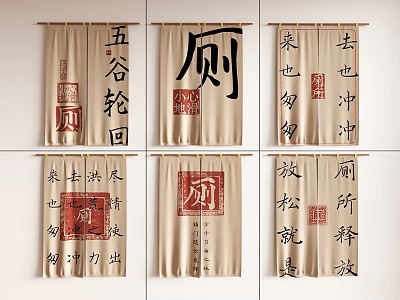 五谷轮回
厕
厕
小心地滑
去也冲冲
来也匆匆
厕所
尽情使出
洪荒之力
去也冲冲
来也匆匆
厕
厕
厕所释放
放松就是